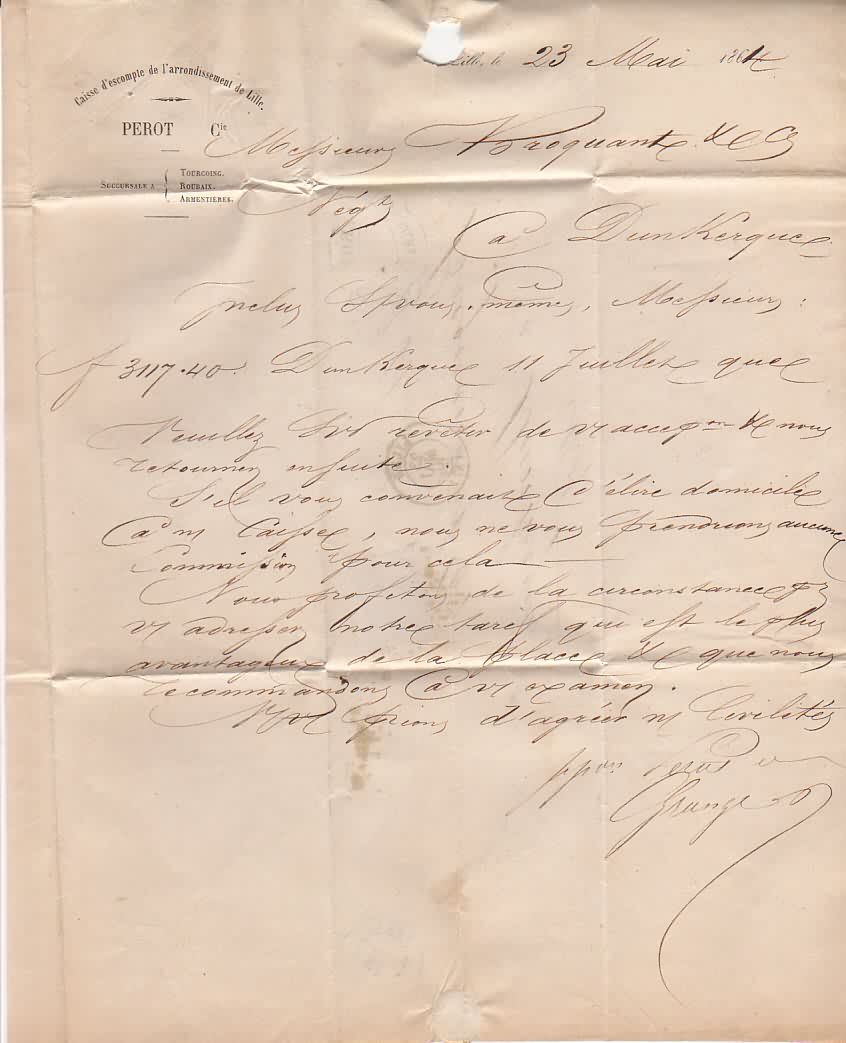 Caisse d'escompte de l'arrondissement de Lille.
PEROT Cie
SUCCURSALE A TOURCOING. ROUBAIX. ARMENTIÈRES.
Lille, le 23 Mai 1864
Messieurs & Co
Négts
à Dunkerque
Inclus vous-mêmes, Messieurs:
f 3117.40. Dunkerque 11 Juillet que
Veuillez revêtir de v/ accepon & nous
retourner ensuite.
S'il vous convenait d'élire domicile
à n/ Caisse, nous ne vous prendrions aucune
Commission pour cela
Nous profitons de la circonstance pr
v/ adresser notre tarif qui est le plus
avantageux de la place & que nous
recommandons à v/ examen.
prions d'agréer n/ Civilités
ppon Perot